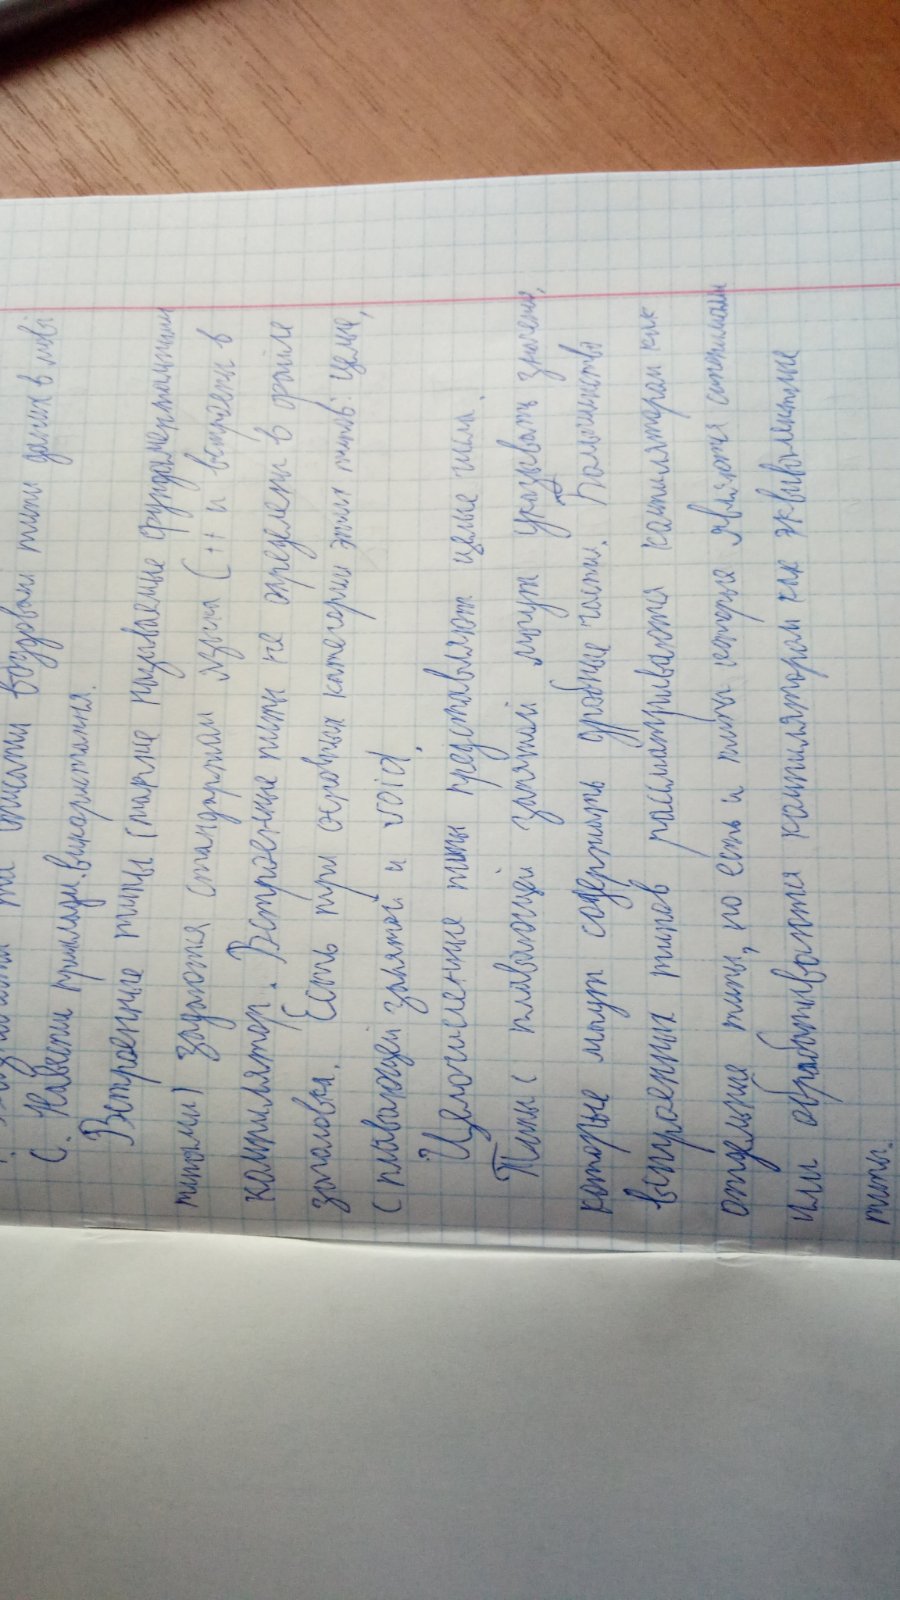 та описати вбудовані типи даних в мові
С. Навести приклади використання.
Встроенные типы (также называемые фундаментальными
типами) задаются стандартом языка С++ и встроены в
компилятор. Встроенные типы не определены в файле
заголовка. Есть три основных категории этих типов: целые,
с плавающей запятой и void.
Целочисленные типы представляют целые числа.
Типы с плавающей запятой могут указывать значения,
которые могут содержать дробные части. Большинство
встроенных типов рассматриваются компилятором как
отдельные типы, но есть и типы которые являются синонимами
или обрабатываются компилятором как эквивалентные
типы.